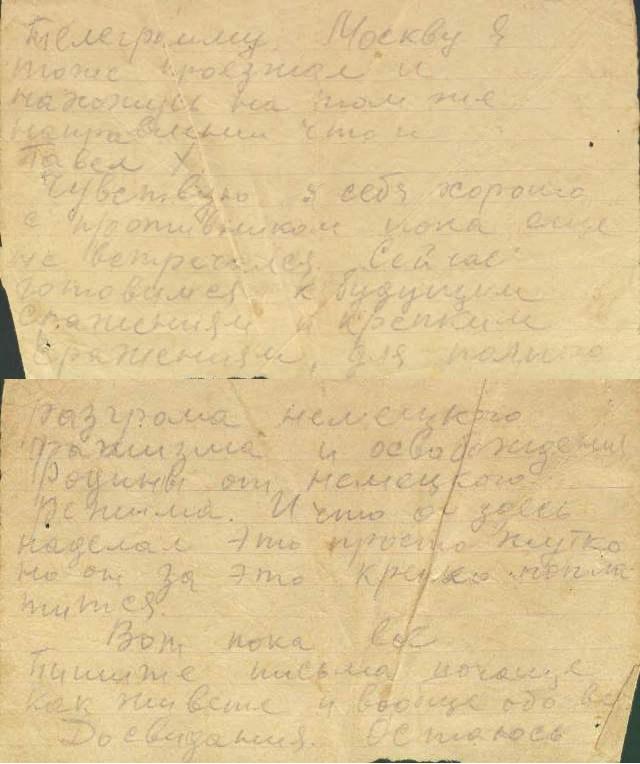 Телеграмму. Москву я
тоже проезжал и
нахожусь на том же
направлении что и
Павел Х
Чувствую я себя хорошо
с противником пока еще
не встречался. Сейчас
готовимся к будущим
сражениям и крепким
сражениям, для полного
разгрома немецкого
фашизма и освобождения
Родины от немецкого
режима. И что он здесь
наделал это просто жутко
но он за это крепко попла
тится.
Вот пока всё
Пишите письма почаще
как живете и вообще обо вс
Досвидания. Остаюсь